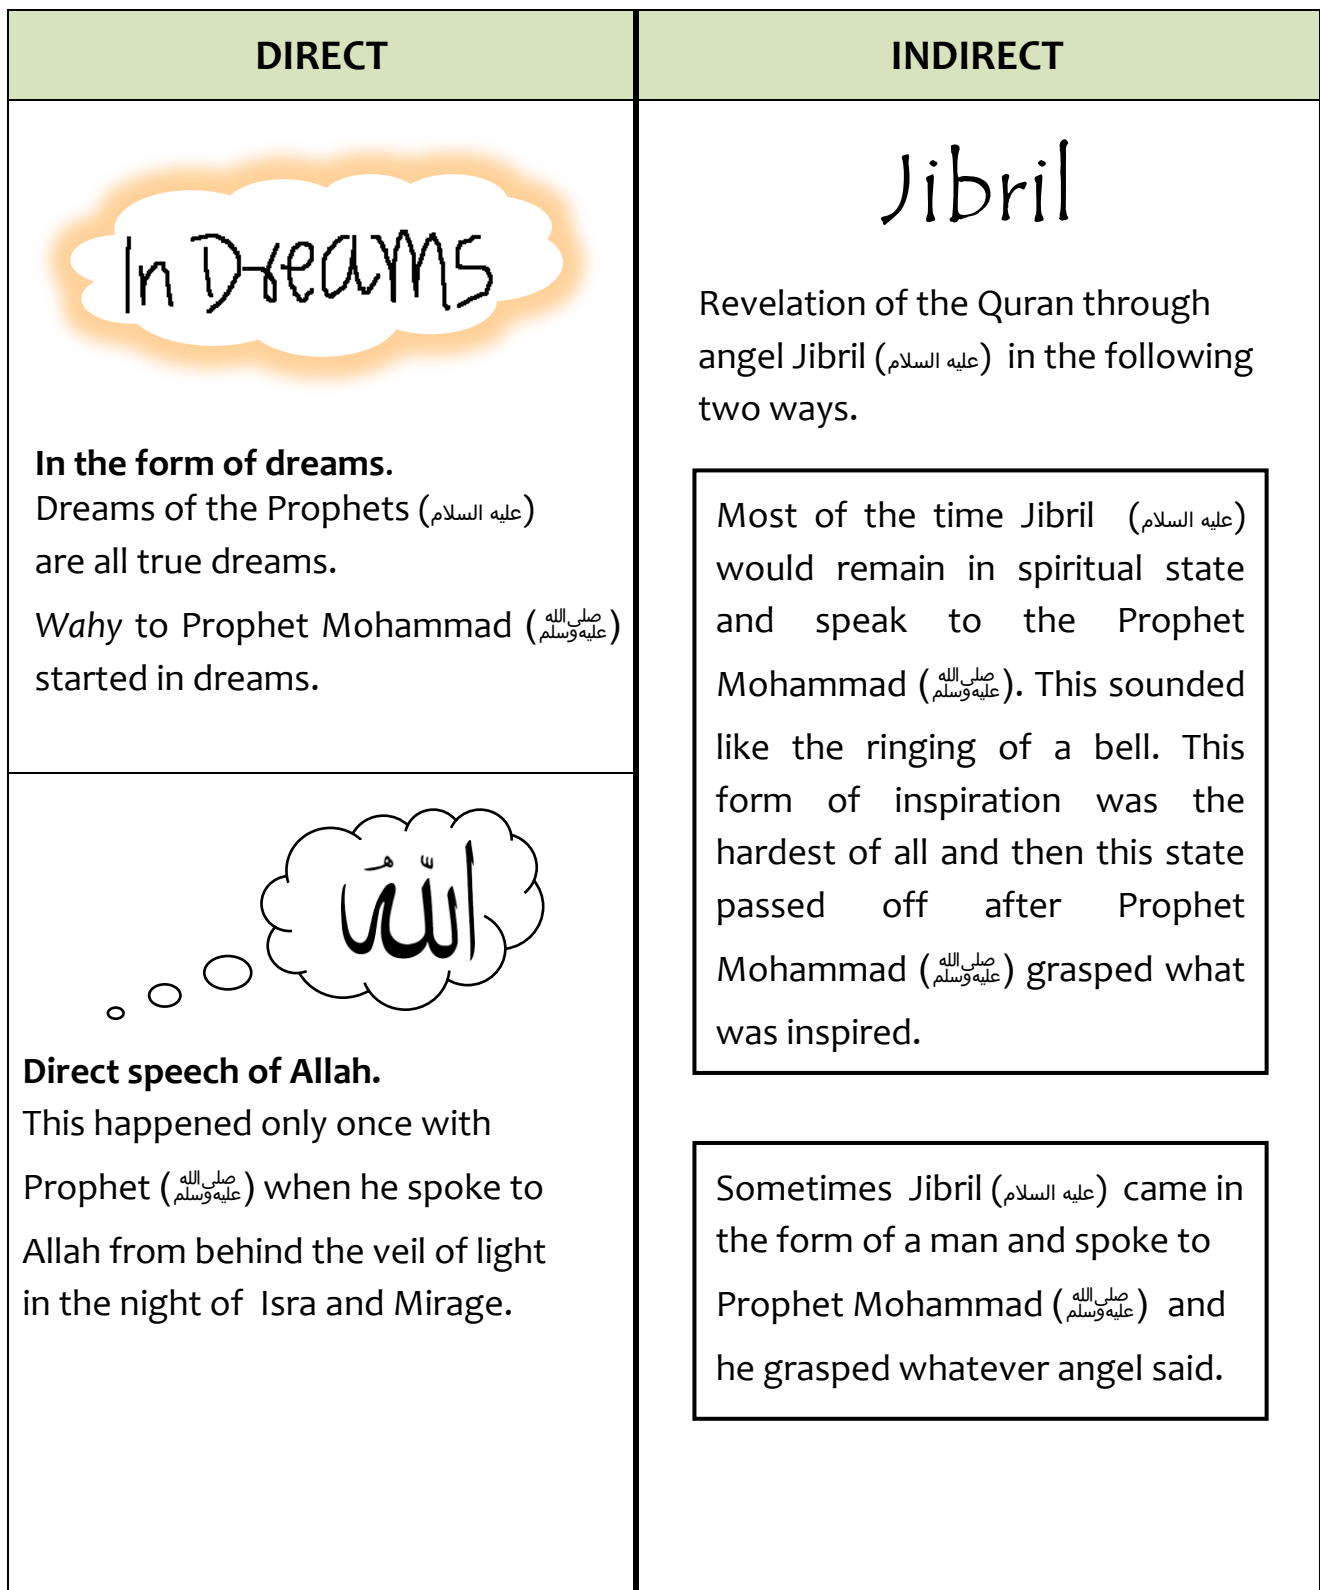 DIRECT
In Dreams
In the form of dreams.
Dreams of the Prophets (عليه السلام)
are all true dreams.
Wahy to Prophet Mohammad (صلى الله عليه وسلم)
started in dreams.
الله
Direct speech of Allah.
This happened only once with
Prophet (صلى الله عليه وسلم) when he spoke to
Allah from behind the veil of light
in the night of Isra and Mirage.
INDIRECT
Jibril
Revelation of the Quran through
angel Jibril (عليه السلام) in the following
two ways.
Most of the time Jibril (عليه السلام)
would remain in spiritual state
and speak to the Prophet
Mohammad (صلى الله عليه وسلم). This sounded
like the ringing of a bell. This
form of inspiration was the
hardest of all and then this state
passed off after Prophet
Mohammad (صلى الله عليه وسلم) grasped what
was inspired.
Sometimes Jibril (عليه السلام) came in
the form of a man and spoke to
Prophet Mohammad (صلى الله عليه وسلم) and
he grasped whatever angel said.